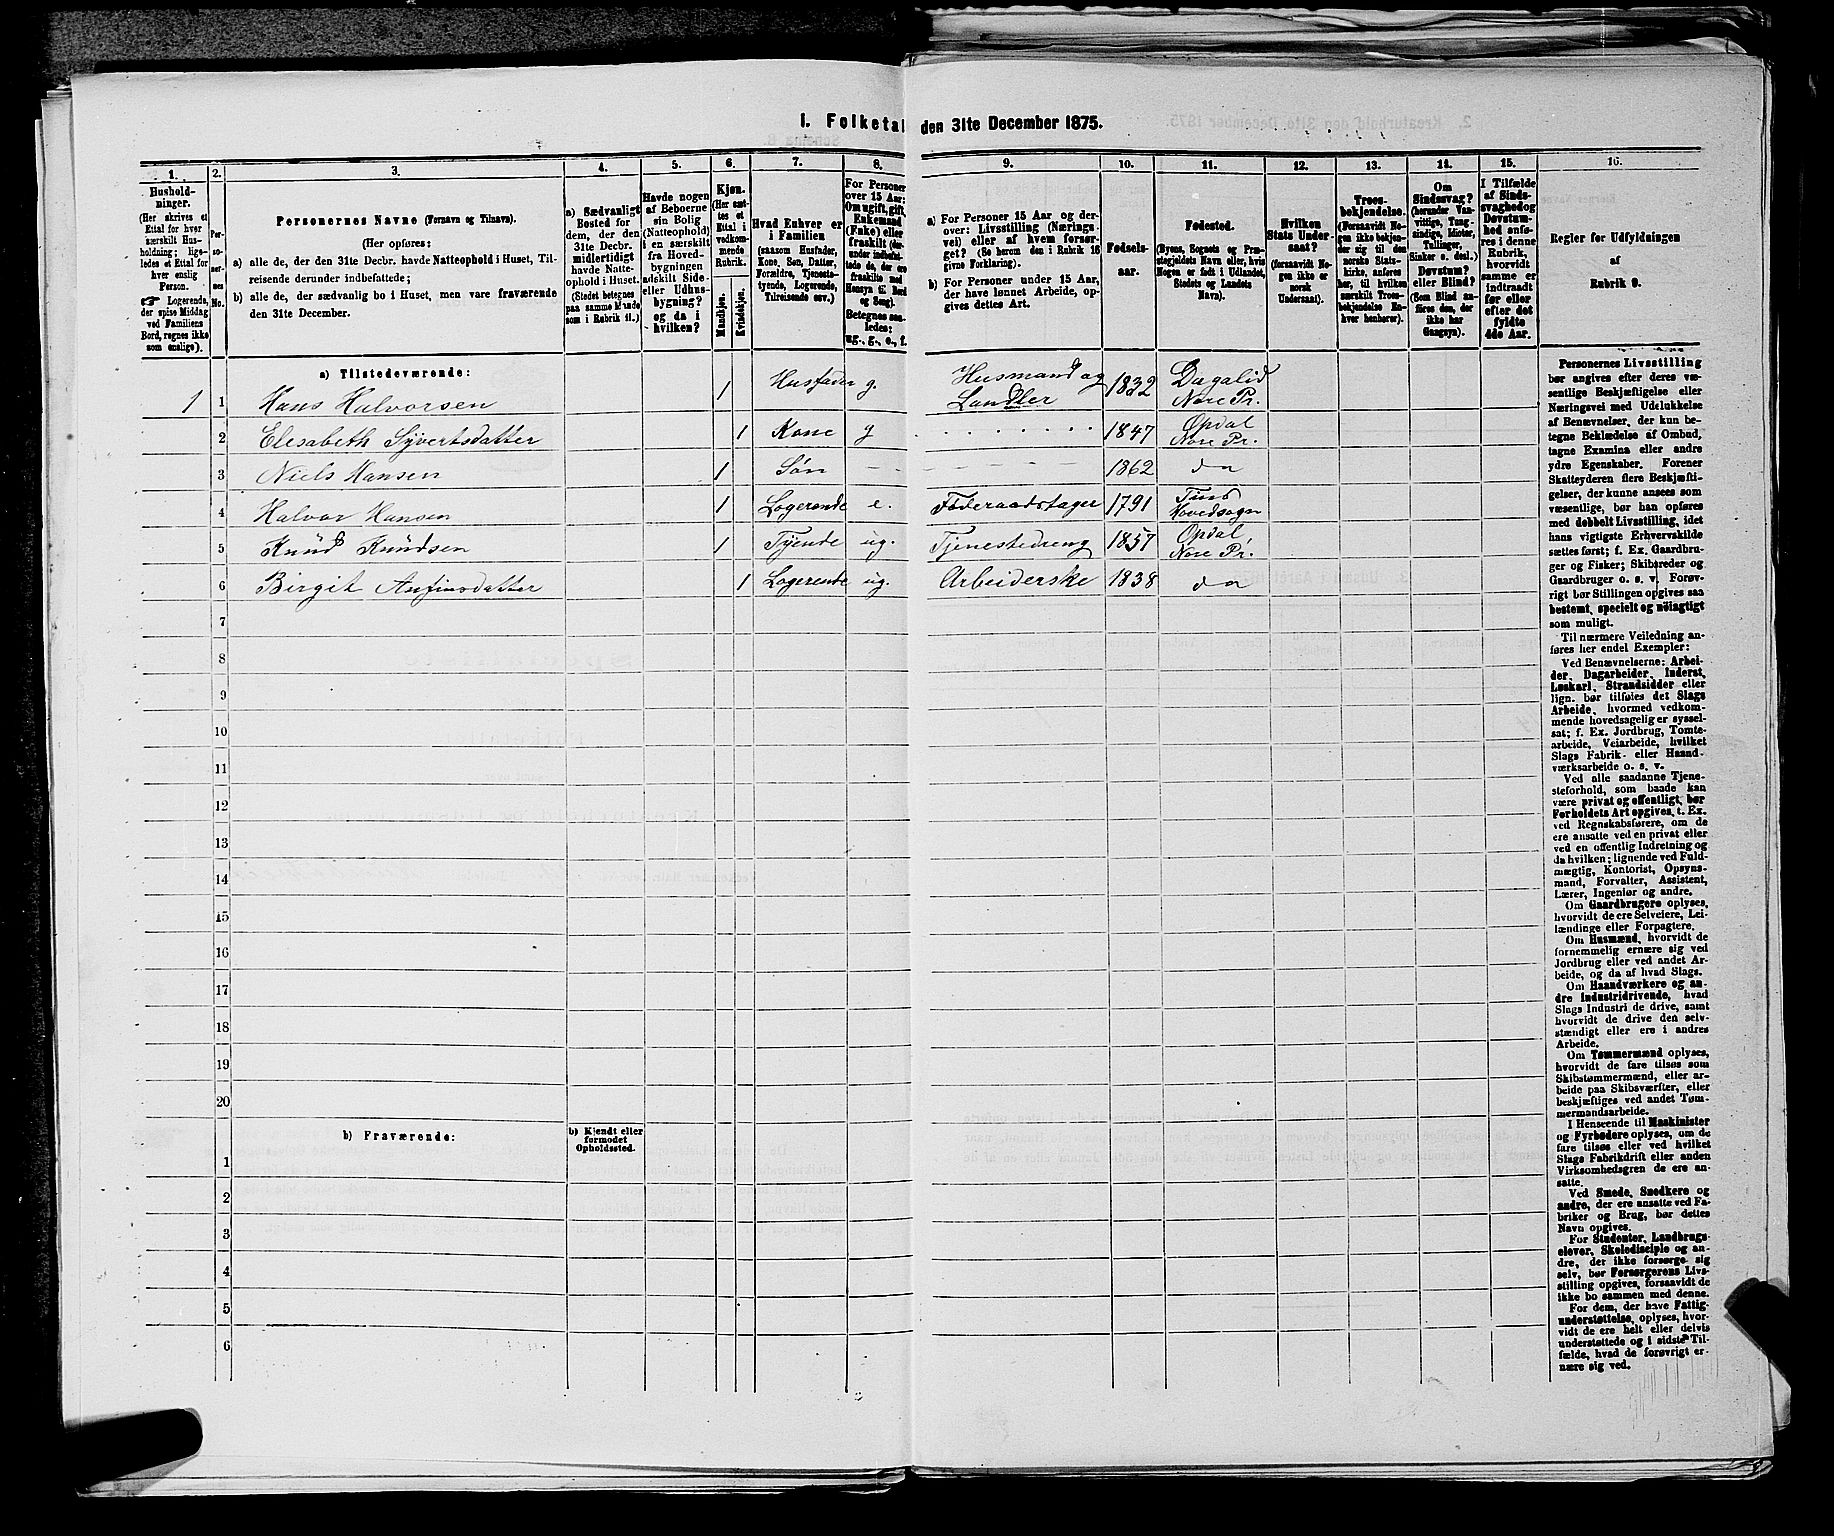 I. Folketal den 31te December 1875.
1.
2.
3.
4.
5.
6.
7.
8.
9.
10.
11.
12.
13.
14.
15.
16.
Hushold-
ninger.
(Her skrives et
Ettal for hver
særskilt Hus-
holdning; lige-
ledes et Ettal for
hver enslig
Person.
☞ Logerende,
der spise Middag
ved Familiens
Bord, regnes ikke
som enslige).
Per-
so-
ner-
nes
No.
Personernes Navne (Fornavn og Tilnavn).
(Her opføres:
a) alle de, der den 31te Decbr. havde Natteophold i Huset, Til-
reisende derunder indbefattede;
b) alle de, der sædvanlig bo i Huset, men vare fraværende
den 31te December).
a) Sædvanligt
Bosted for
dem, der den
31te Decbr.
midlertidigt
havde Natte-
ophold i Huset.
(Stedet betegnes
paa samme Maade
som i Rubrik 11.)
Havde nogen
af Beboerne
sin Bolig
(Natteophold)
i en særskilt
fra Hoved-
bygningen
adskilt Side-
eller Udhus-
bygning?
og da i
hvilken?
Kjøn.
(Her sæt-
tes et
Ettal i
vedkom-
mende
Rubrik.
Mandkjøn.
Kvindekjøn.
Hvad Enhver er
i Familien
(saasom Husfader,
Kone, Søn, Datter,
Forældre, Tjeneste-
tyende, Logerende,
Tilreisende osv.)
For Personer
over 15 Aar:
Om ugift, gift,
Enkemand
(Enke) eller
fraskilt (der-
under indbefat-
tede de, der ere
fraskilte med
Hensyn til Bord
og Seng).
Betegnes saa-
ledes:
ug., g., e., f.
a) For Personer 15 Aar og der-
over: Livsstilling (Nærings-
vei) eller af hvem forsør-
get? (Se herom den i Rubrik 16
givne Forklaring).
b) For Personer under 15 Aar,
der have lønnet Arbeide, op-
gives dettes Art.
Fødsels-
aar.
Fødested.
(Byens, Sognets og Præ-
stegjeldets Navn eller, hvis
Nogen er født i Udlandet,
Stedets og Landets
Navn).
Hvilken
Stats Under-
saat?
(forsaavidt No-
gen ikke er
norsk
Undersaat).
Troes-
bekjendelse.
(Forsaavidt No-
gen ikke bekjen-
der sig til den
norske Stats-
kirke, anføres
her, til hvilken
særskilt Troes-
bekjendelse En-
hver henhører).
Om
Sindssvag?
(herunder Van-
vittige, Tung-
sindige, Idioter,
Tullinger,
Sinker o. desl.)
Døvstum?
eller Blind?
(Som Blind an-
føres den, der
ikke har
Gangsyn).
I Tilfælde
af Sinds-
svaghed og
Døvstum-
hed anfø-
res i denne
Rubrik,
hvorvidt
samme er
indtraadt
før eller
efter det
fyldte
4de Aar.
Regler for Udfyldningen
af
Rubrik 9.
a) Tilstedeværende:
1 1 Hans Halvorsen 1 Husfader g. Husmand og Landler 1832 Dagalid Nore Pr.
2 Elesabeth Syvertsdatter 1 Kone g 1847 Opdal Nore Pr.
3 Niels Hansen 1 Søn 1862 do
4 Halvor Hansen 1 Logerende e. Føderaadstager 1791 Tins Hovedsogn
5 Knud Knudsen 1 Tyende ug. Tjenestedreng 1857 Opdal Nore Pr.
6 Birgit Anfinsdatter 1 Logerende ug. Arbeiderske 1838 do
7
8
9
10
11
12
13
14
15
16
17
18
19
20
b) Fraværende:
b) Kjendt eller
formodet
Opholdssted.
1
2
3
4
5
6
Personernes Livsstilling
bør angives efter deres væ-
sentlige Beskjæftigelse eller
Næringsvei med Udelukkelse
af Benævnelser, der kun be-
tegne Beklædelse af Ombud,
tagne Examina eller andre
ydre Egenskaber. Forener
Skatteyderen flere Beskjæfti-
gelser, der kunne ansees som
væsentlige, bør han opføres
med dobbelt Livsstilling, idet
hans vigtigste Erhvervskilde
sættes først; f. Ex. Gaardbru-
ger og Fisker; Skibsreder og
Gaardbruger o. s. v. Forøv-
rigt bør Stillingen opgives saa
bestemt, specielt og nøiagtigt
som muligt.
Til nærmere Veiledning an-
føres her endel Exempler:
Ved Benævnelserne: Arbei-
der, Dagarbeider, Inderst,
Løskarl, Strandsidder eller
lign. bør tilføies det Slags
Arbeide, hvormed vedkom-
mende hovedsagelig er syssel-
sat; f. Ex. Jordbrug, Tomte-
arbeide, Veiarbeide, hvilket
Slags Fabrik- eller Haand-
værksarbeide o. s. v.
Ved alle saadanne Tjene-
steforhold, som baade kan
være privat og offentligt, bør
Forholdets Art opgives, t. Ex.
ved Regnskabsførere, om de
ere ansatte ved en privat eller
ved en offentlig Indretning og
da hvilken; lignende ved Fuld-
mægtig, Kontorist, Opsyns-
mand, Forvalter, Assistent,
Lærer, Ingeniør og andre.
Om Gaardbrugere oplyses,
hvorvidt de ere Selveiere, Lei-
lændinge eller Forpagtere.
Om Husmænd, hvorvidt de
fornemmelig ernære sig ved
Jordbrug eller ved andet Ar-
beide, og da af hvad Slags.
Om Haandværkere og an-
dre industridrivende, hvad
Slags Industri de drive, samt
hvorvidt de drive den selv-
stændigt eller ere i andres
Arbeide.
Om Tømmermænd oplyses,
hvorvidt de fare tilsøs som
Skibstømmermænd, eller ar-
beide paa Skibsværfter, eller
beskjæftiges ved andet Tøm-
mermandsarbeide.
I Henseende til Maskinister
og Fyrbødere oplyses, om de
fare tilsøs eller ved hvilket
Slags Fabrikdrift eller anden
Virksomhedsgren de ere an-
satte.
Ved Smede, Snedkere og
andre, der ere ansatte ved Fa-
briker og Brug, bør dettes
Navn opgives.
For Studenter, Landbrugs-
elever, Skoledisciple og an-
dre, der ikke forsørge sig
selv, bør Forsørgerens Livs-
stilling opgives, forsaavidt de
ikke bo sammen med denne.
For dem, der have Fattig-
understøttelse, oplyses, hvor-
vidt de ere helt eller delvis
understøttede og i sidste Til-
fælde, hvad de forøvrigt er-
nære sig ved.